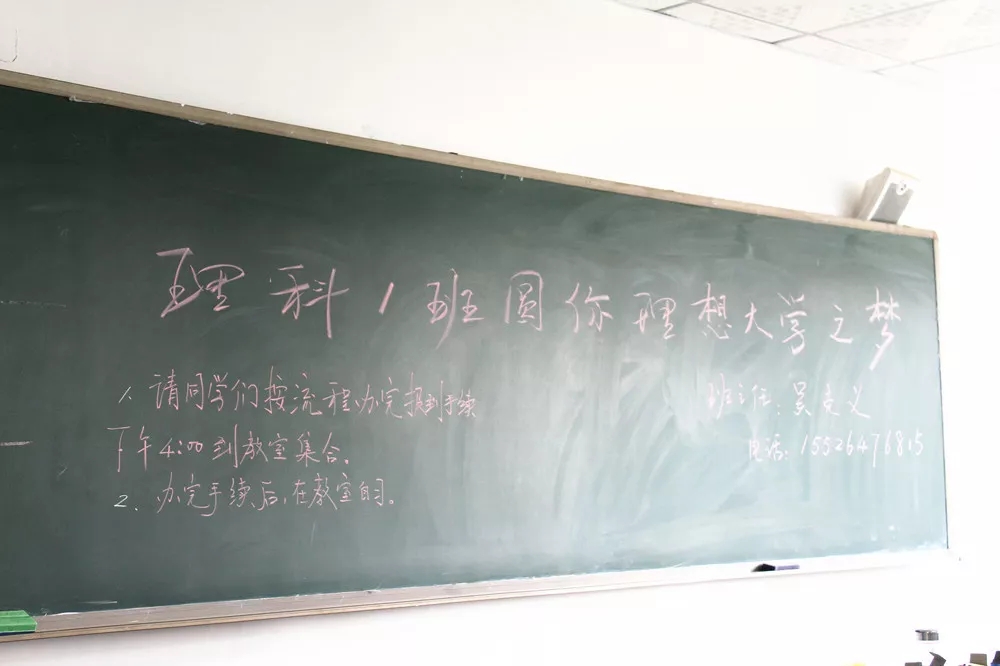 理科1班圆你理想大学之梦
1. 请同学们按流程办完报到手续
下午4:00到教室集合。
2. 办完手续后,在教室自习。
班主任:吴克义
电话:15526476815